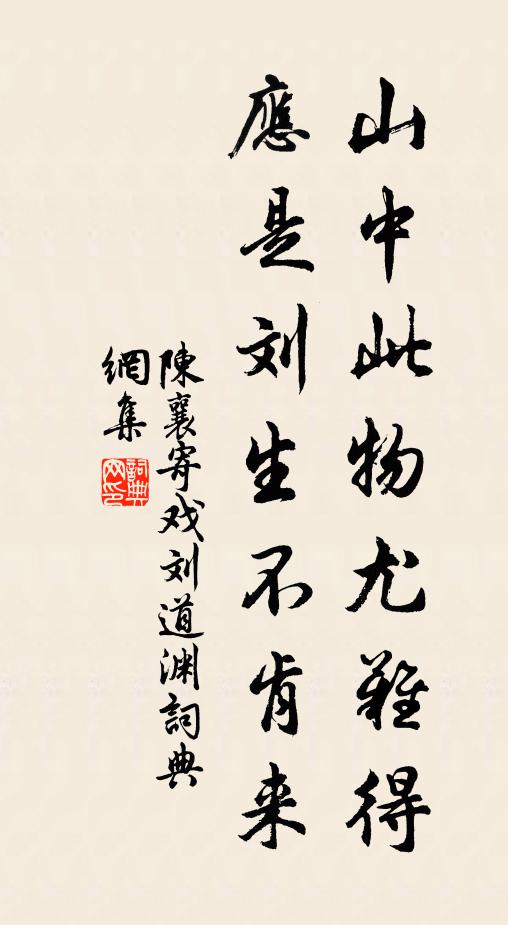 山中此物尤難得
應是刘生不肯来
陳襄寄戏刘道渊詞典
網集
詞典
网印